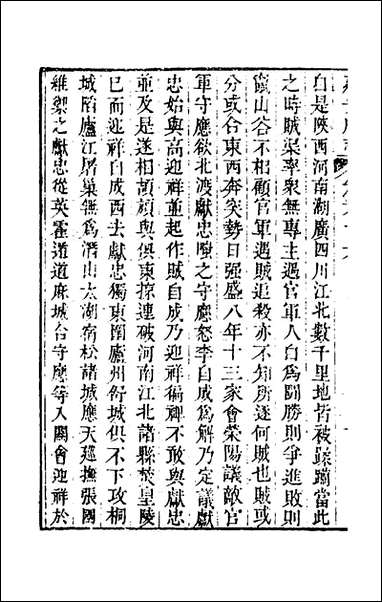 自是陝西河南湖廣四川江北數千里地皆被蹂躪當此
之時賊渠率衆無專主遇官軍人自爲鬬勝則爭進敗則
竄山谷不相顧官軍遇賊追殺亦不知所逐何賊也賊或
分或合東西奔突勢日强盛八年十三家會榮陽議敵官
軍守應欲北渡獻忠嗤之守應怒李自成爲解乃定議獻
忠始與高迎祥並起作賊自成乃迎祥偏裨不敢與獻忠
並及是遂相頡頏與俱東掠連破河南江北諸縣焚皇陵
已而迎祥自成西去獻忠獨東圍廬州舒城俱不下攻桐
城陷廬江屠巢無爲潛山太湖宿松諸城應天廵撫張國
維禦之獻忠從英霍遁道麻城合守應等入關會迎祥於